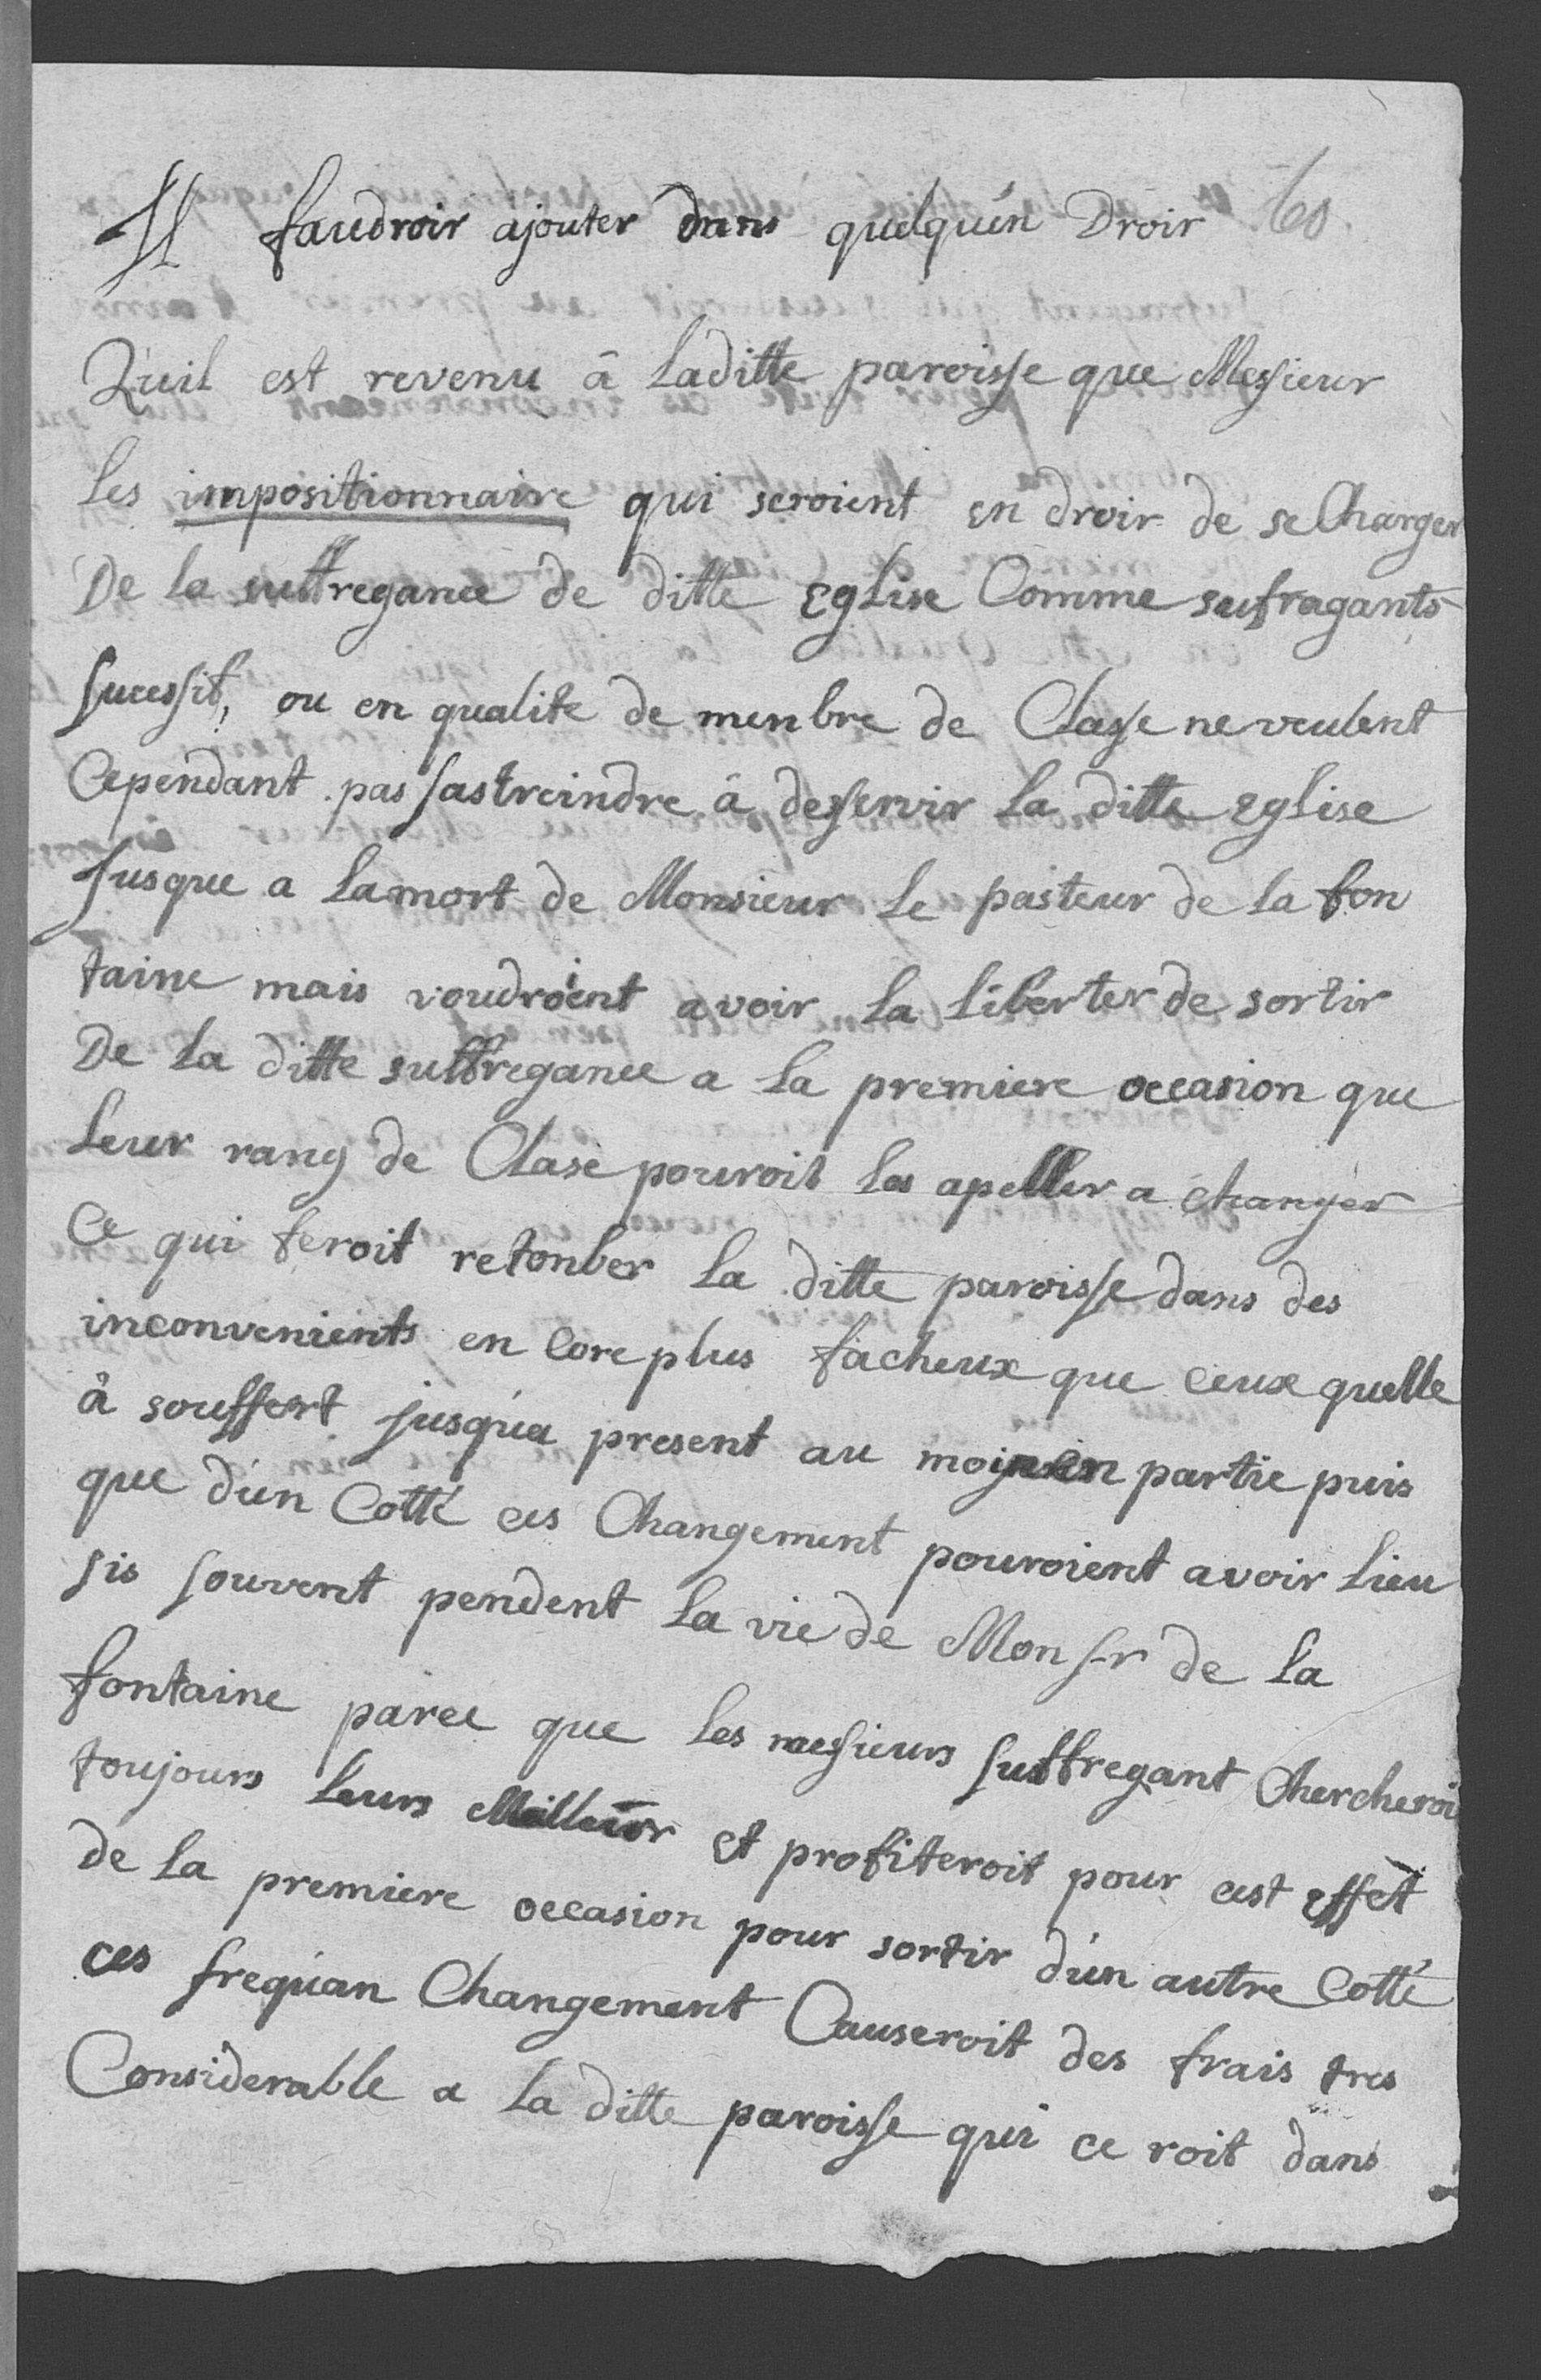 Il faudroir ajouter dans quelqu'én Droir 60.
Qu'il est revenu â laditte paroisse que Messieur
les impositionnaire qui seroient en droir de se Charger
De la suffregance de ditte Eglise Comme sufragants
sucessif, ou en qualite de menbre de Classe ne veulent
Cependant pas sastreindre â desservir la ditte Eglise
Jusque a la mort de Monsieur le pasteur de la fon
taine mais voudroient avoir la liberter de sortir
De la ditte suffregance a la premiere occasion que
leur rang de Clase pouroit les apeller a changer
Ce qui feroit retonber la ditte paroisse dans des
inconvenients en core plus facheux que ceux quelle
â souffert jusqu'a present au moins en partie puis
que d'un Cotté ces Changement pouroient avoir lieu
sis souvent pendent la vie de Mon sr de la
fontaine parce que les messieurs suffregant Chercheroi
toujours leurs Meilleur et profiteroit pour cest Effet
de la premiere occasion pour sortir d'un autre Cotté
ces frequan Changement Causeroit des frais tres
Considerable a la ditte paroisse qui ce roit dans